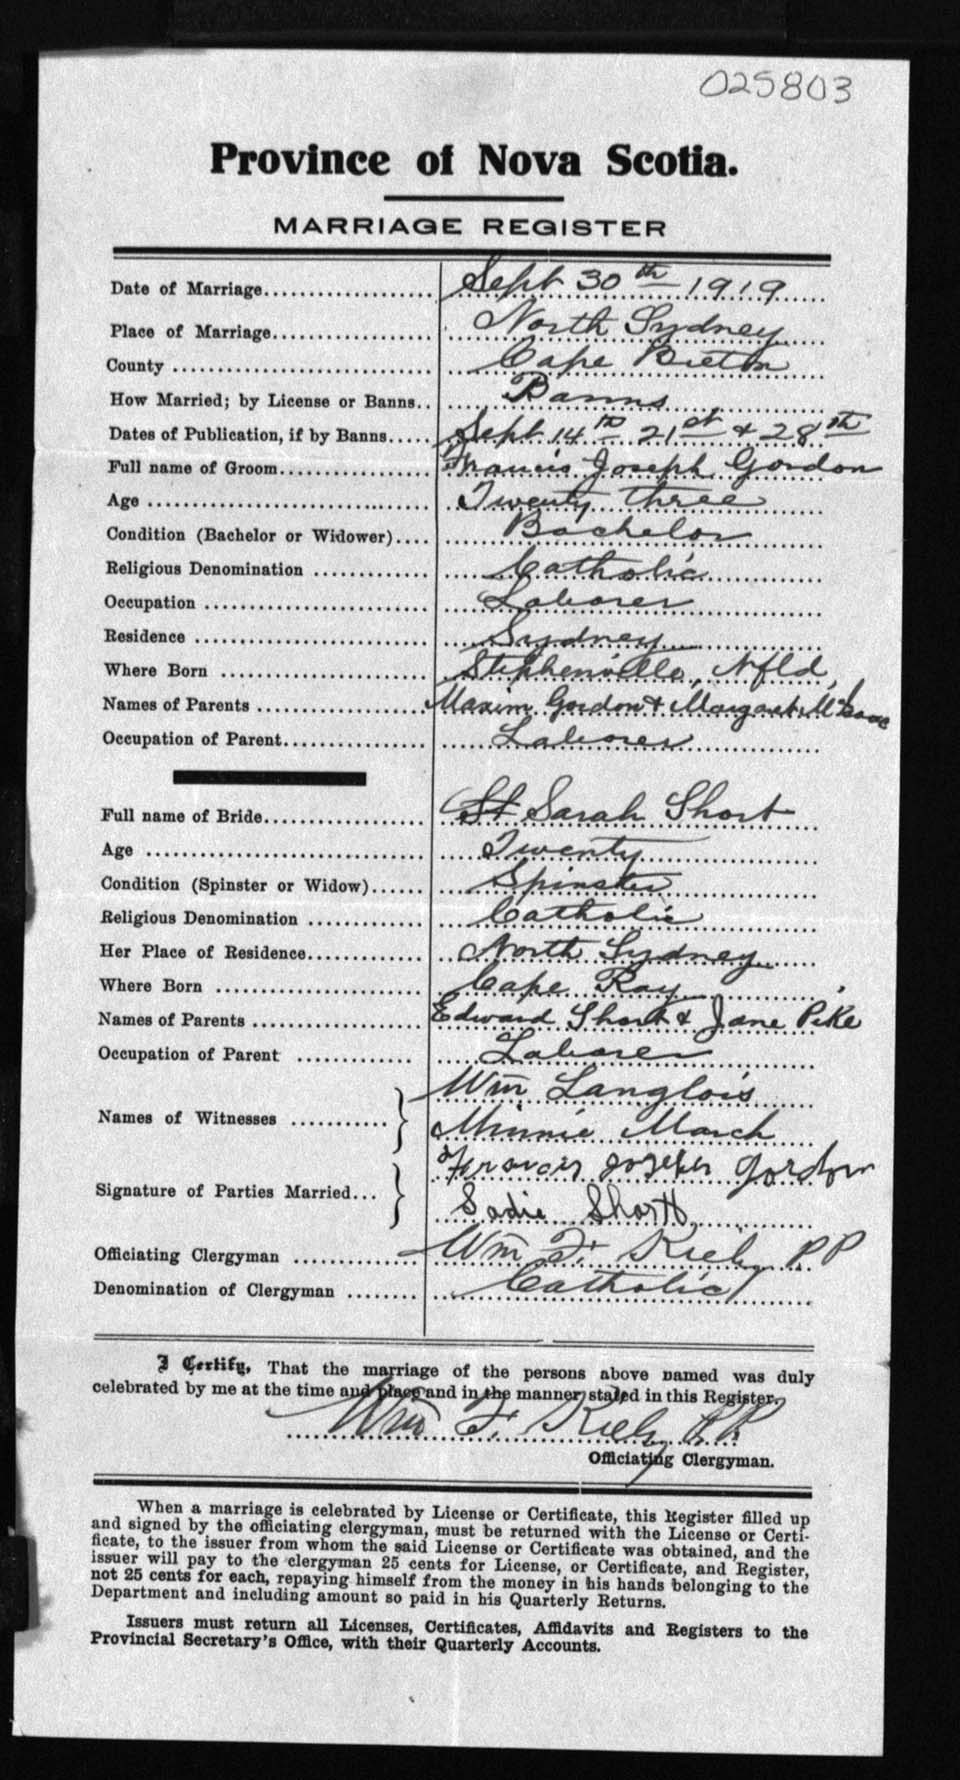 025803
Province of Nova Scotia.
MARRIAGE REGISTER
Date of Marriage.................... Sept 30th 1919
Place of Marriage................... North Sydney
County .............................. Cape Breton
How Married; by License or Banns.. Banns
Dates of Publication, if by Banns..... Sept 14th 21st & 28th
Full name of Groom.................. Francis Joseph Gordon
Age ................................. Twenty three
Condition (Bachelor or Widower).... Bachelor
Religious Denomination ............. Catholic
Occupation .......................... Laborer
Residence ........................... Sydney
Where Born ......................... Stephenville, Nfld,
Names of Parents ................... Maxim Gordon & Margaret McIsaac
Occupation of Parent................ Laborer
Full name of Bride................... St Sarah Short
Age ................................ Twenty
Condition (Spinster or Widow)...... Spinster
Religious Denomination ............. Catholic
Her Place of Residence............. North Sydney
Where Born ........................ Cape Ray
Names of Parents .................... Edward Short & Jane Pike
Occupation of Parent ............. Laborer
Names of Witnesses ........... } Wm Langlois
Minnie March
Signature of Parties Married... } Francis Joseph Gordon
Sadie Shortt
Officiating Clergyman ............ Wm F. Kiely PP
Denomination of Clergyman ........ Catholic
I Certify, That the marriage of the persons above named was duly
celebrated by me at the time and place and in the manner stated in this Register.
Wm F. Kiely P.P.
Officiating Clergyman.
When a marriage is celebrated by License or Certificate, this Register filled up
and signed by the officiating clergyman, must be returned with the License or Certi-
ficate, to the issuer from whom the said License or Certificate was obtained, and the
issuer will pay to the clergyman 25 cents for License, or Certificate, and Register,
not 25 cents for each, repaying himself from the money in his hands belonging to the
Department and including amount so paid in his Quarterly Returns.
Issuers must return all Licenses, Certificates, Affidavits and Registers to the
Provincial Secretary's Office, with their Quarterly Accounts.